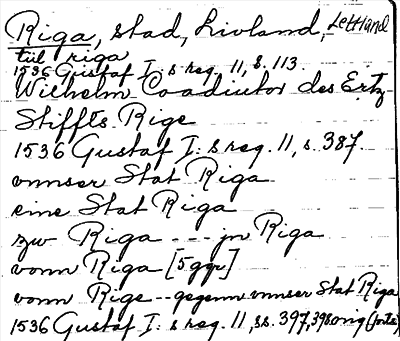 Riga, stad, Livland, Lettland
till riga
1536 Gustaf I: s reg. 11, s. 113.
Wilhelm Coadiutor des Ertz-
Stiffts Rige
1536 Gustaf I: s reg. 11, s. 387
vnnser Stat Riga
eine Stat Riga
zw Riga --- jn Riga
vonn Riga [5 ggr]
vonn Rige -- gegenn vnnser Stat Riga
1536 Gustaf I: s reg. 11, ss. 397, 398 orig (forts)